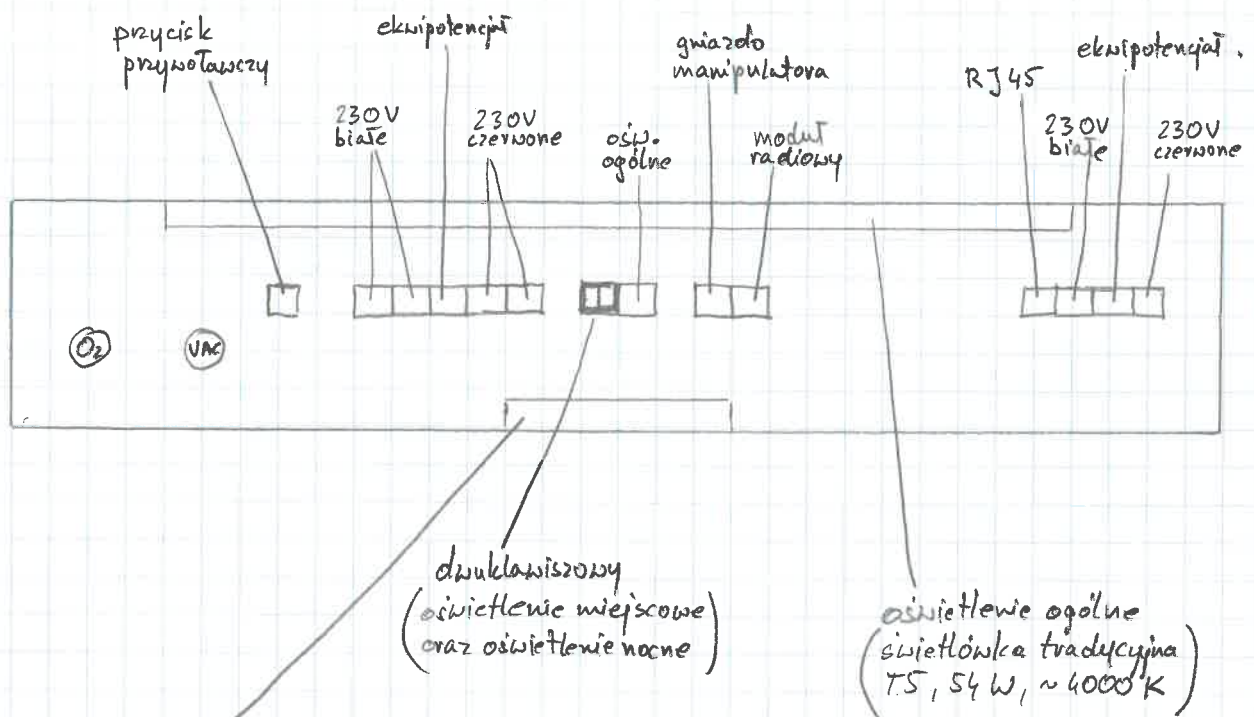 przycisk
przywoławczy
ekwipotencjał
230V
białe
230V
czerwone
ośw.
ogólne
gniazdo
manipulatora
moduł
radiowy
RJ45
ekwipotencjał.
230V
białe
230V
czerwone
O2
VAC
dwuklawiszowy
(oświetlenie miejscowe
oraz oświetlenie nocne)
oświetlenie ogólne
(świetlówka tradycyjna
T5, 54 W, ~4000 K)